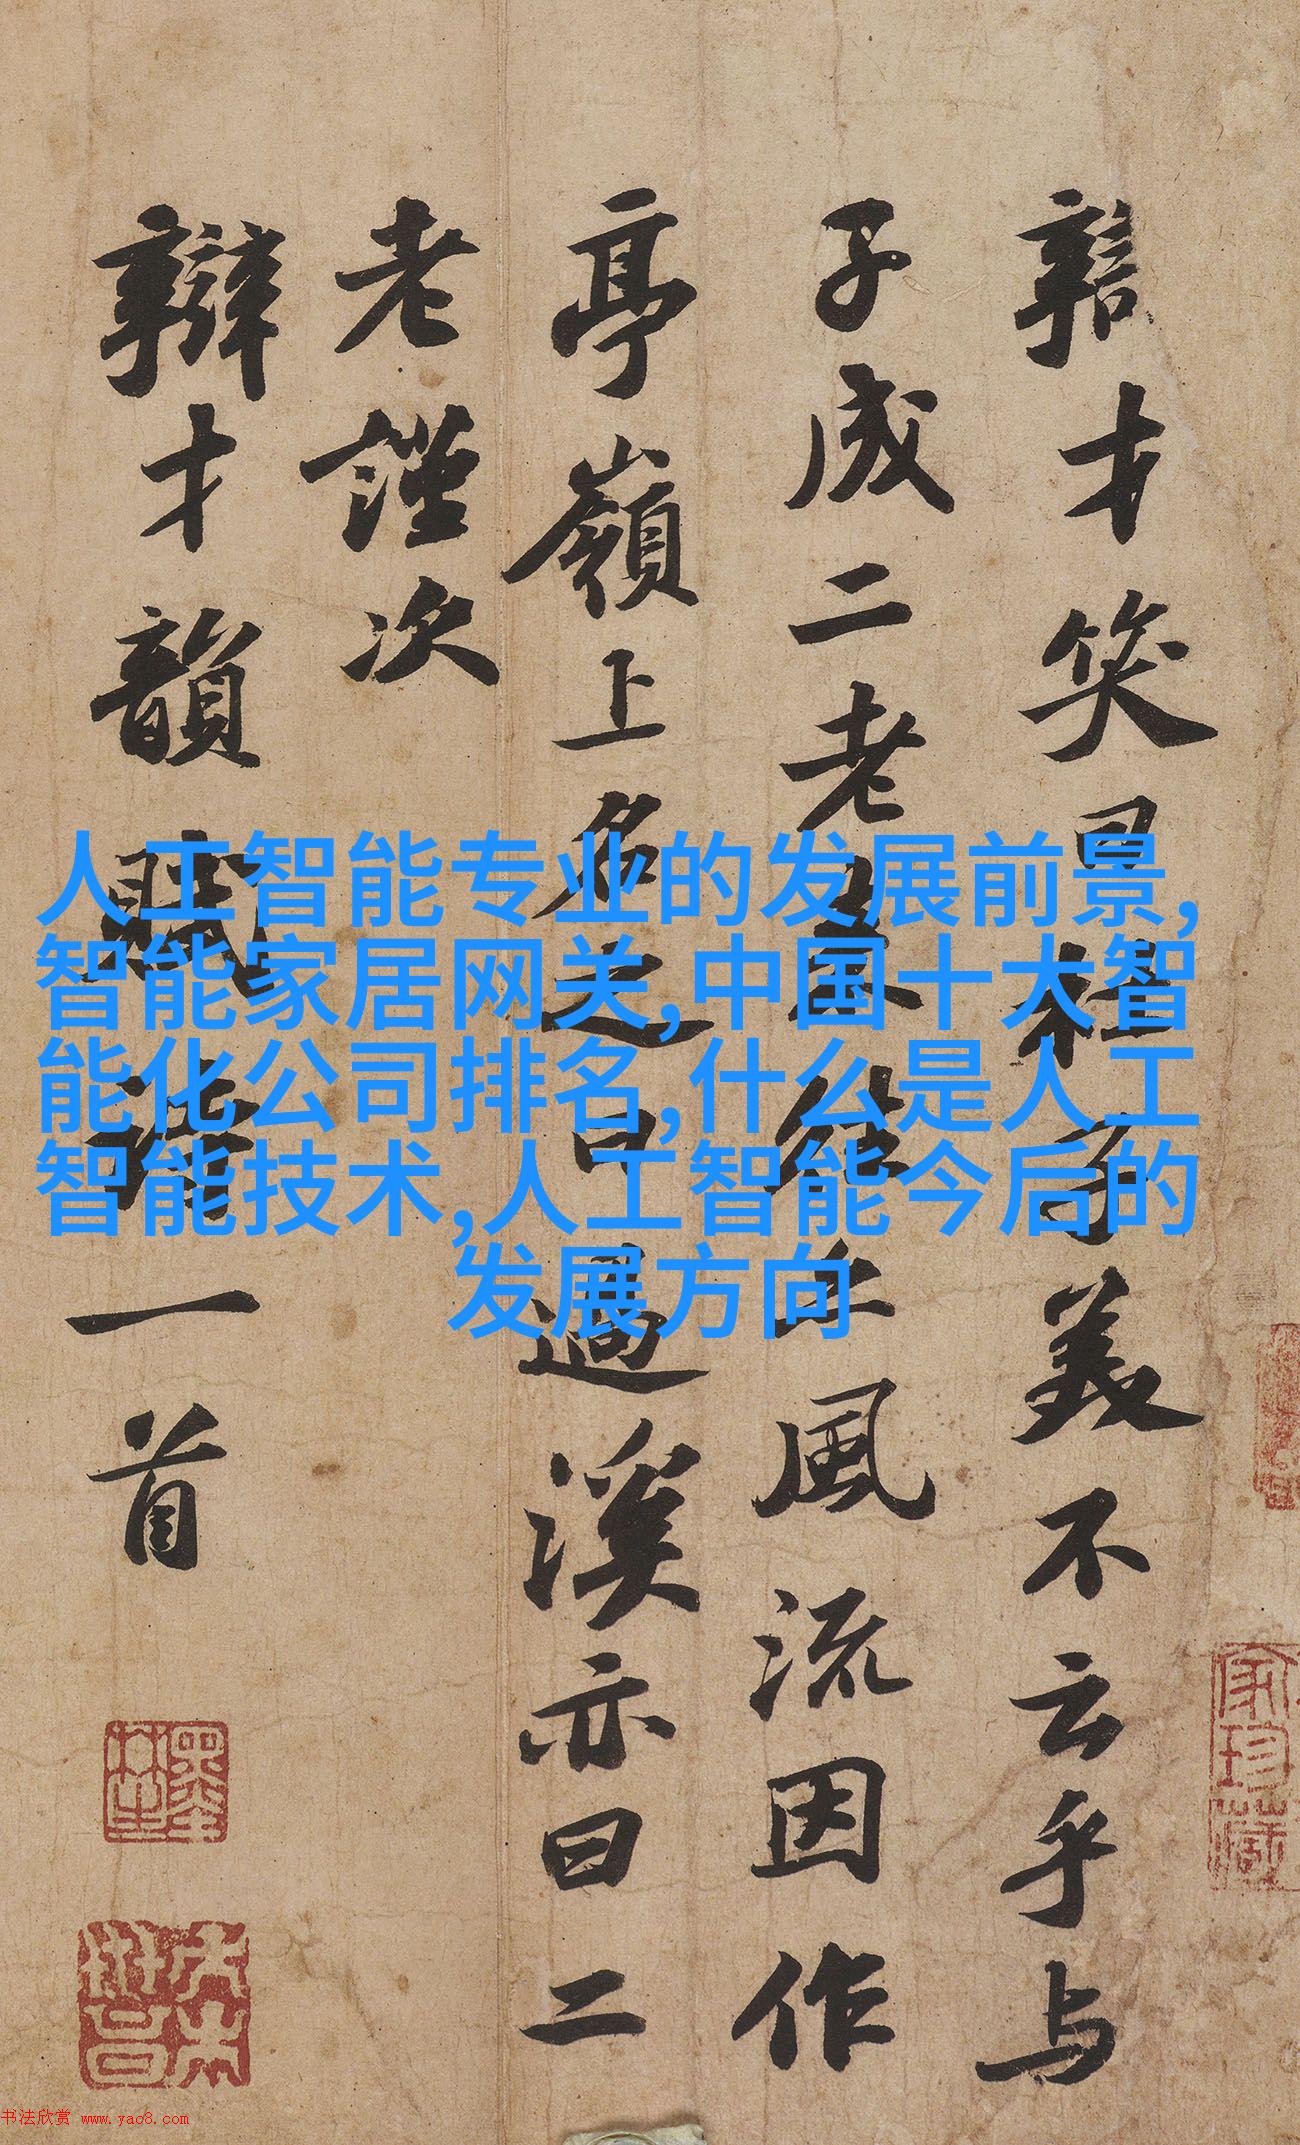 辯才笑曰杜子美不云乎与
子成二老来往亦風流因作
亭嶺上名之曰過溪亦曰二
老謹次
辯才韻賦詩一首
人工智能专业的发展前景,
智能家居网关,中国十大智
能化公司排名,什么是人工
智能技术,人工智能今后的
发展方向
家珍藏
书法欣赏 www.yac8.com